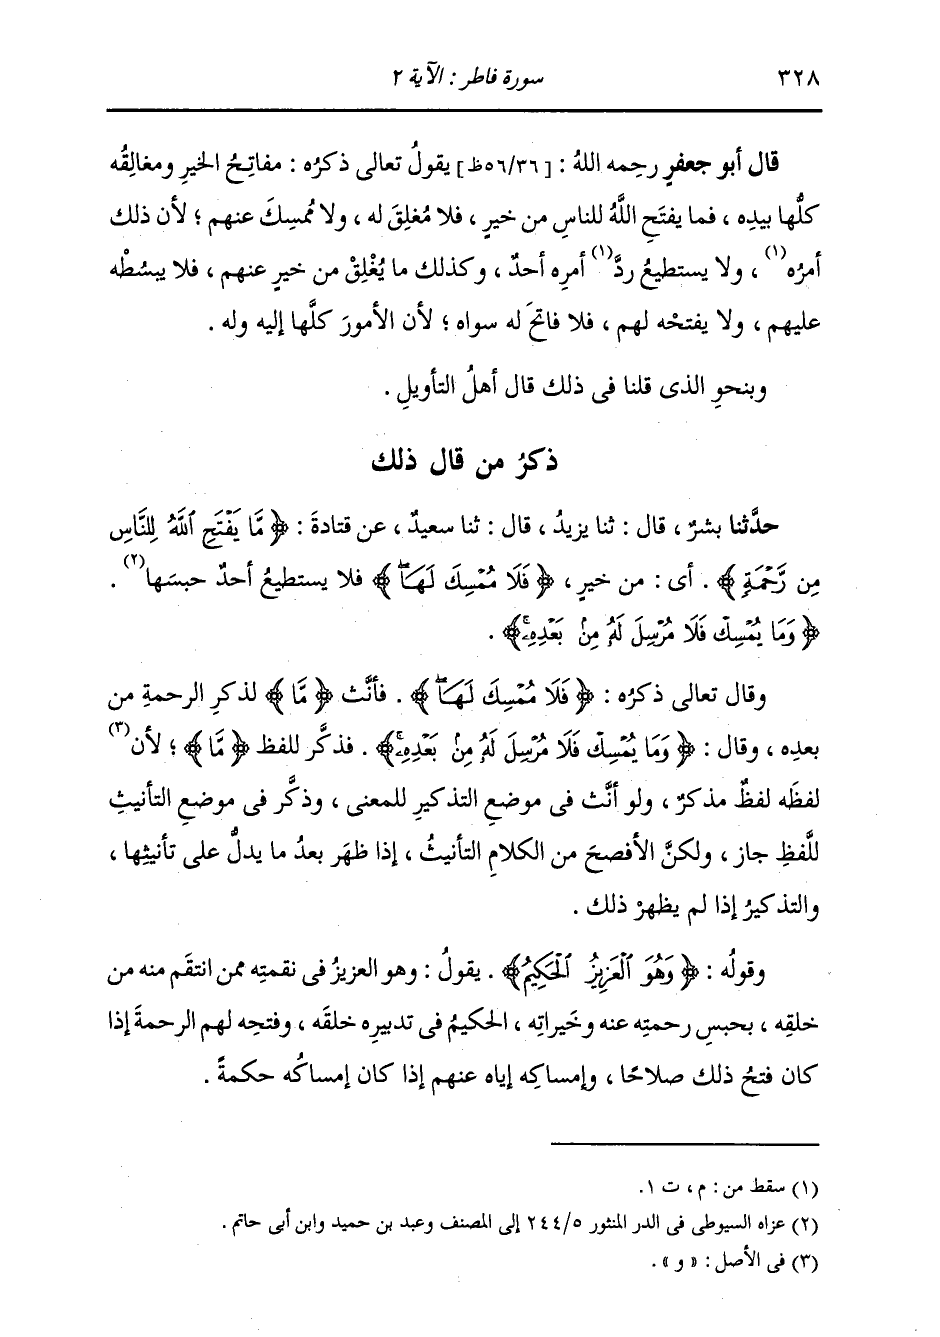 ٣٢٨ سورة فاطر : الآية ٢
قال أبو جعفرٍ رحمه اللهُ : [٥٦/٣٦ظ] يقولُ تعالى ذكرُه : مفاتِحُ الخيرِ ومغالِقُه
كلُّها بيدِه ، فما يفتَحِ اللَّهُ للناسِ من خيرٍ ، فلا مُغلِقَ له ، ولا مُمسِكَ عنهم ؛ لأن ذلك
أمرُه(١) ، ولا يستطيعُ ردَّ(١) أمرِه أحدٌ ، وكذلك ما يُغْلِقْ من خيرٍ عنهم ، فلا يبسُطْه
عليهم ، ولا يفتحْه لهم ، فلا فاتحَ له سواه ؛ لأن الأمورَ كلَّها إليه وله .
وبنحوِ الذى قلنا فى ذلك قال أهلُ التأويلِ .
ذكرُ من قال ذلك
حدَّثنا بشرٌ ، قال : ثنا يزيدُ ، قال : ثنا سعيدٌ ، عن قتادةَ : ﴿ مَّا يَفْتَحِ ٱللَّهُ لِلنَّاسِ
مِن رَّحْمَةٍ ﴾ . أى : من خيرٍ ، ﴿ فَلَا مُمْسِكَ لَهَاۖ ﴾ فلا يستطيعُ أحدٌ حبسَها(٢) .
﴿ وَمَا يُمْسِكْ فَلَا مُرْسِلَ لَهُۥ مِنۢ بَعْدِهِۦۚ ﴾ .
وقال تعالى ذكرُه : ﴿ فَلَا مُمْسِكَ لَهَاۖ ﴾ . فأنَّث ﴿ مَّا ﴾ لذكرِ الرحمةِ من
بعدِه ، وقال : ﴿ وَمَا يُمْسِكْ فَلَا مُرْسِلَ لَهُۥ مِنۢ بَعْدِهِۦۚ ﴾ . فذكَّر للفظ ﴿ مَّا ﴾ ؛ لأن(٣)
لفظَه لفظٌ مذكرٌ ، ولو أنَّث فى موضعِ التذكيرِ للمعنى ، وذكَّر فى موضعِ التأنيثِ
للَّفظِ جاز ، ولكنَّ الأفصحَ من الكلامِ التأنيثُ ، إذا ظهَر بعدُ ما يدلُّ على تأنيثِها ،
والتذكيرُ إذا لم يظهرْ ذلك .
وقولُه : ﴿ وَهُوَ ٱلْعَزِيزُ ٱلْحَكِيمُ ﴾ . يقولُ : وهو العزيزُ فى نقمتِه ممن انتقَم منه من
خلقِه ، بحبسِ رحمتِه عنه وخَيراتِه ، الحكيمُ فى تدبيرِه خلقَه ، وفتحِه لهم الرحمةَ إذا
كان فتحُ ذلك صلاحًا ، وإمساكِه إياه عنهم إذا كان إمساكُه حكمةً .
(١) سقط من : م ، ت ١ .
(٢) عزاه السيوطى فى الدر المنثور ٢٤٤/٥ إلى المصنف وعبد بن حميد وابن أبى حاتم .
(٣) فى الأصل : « و » .